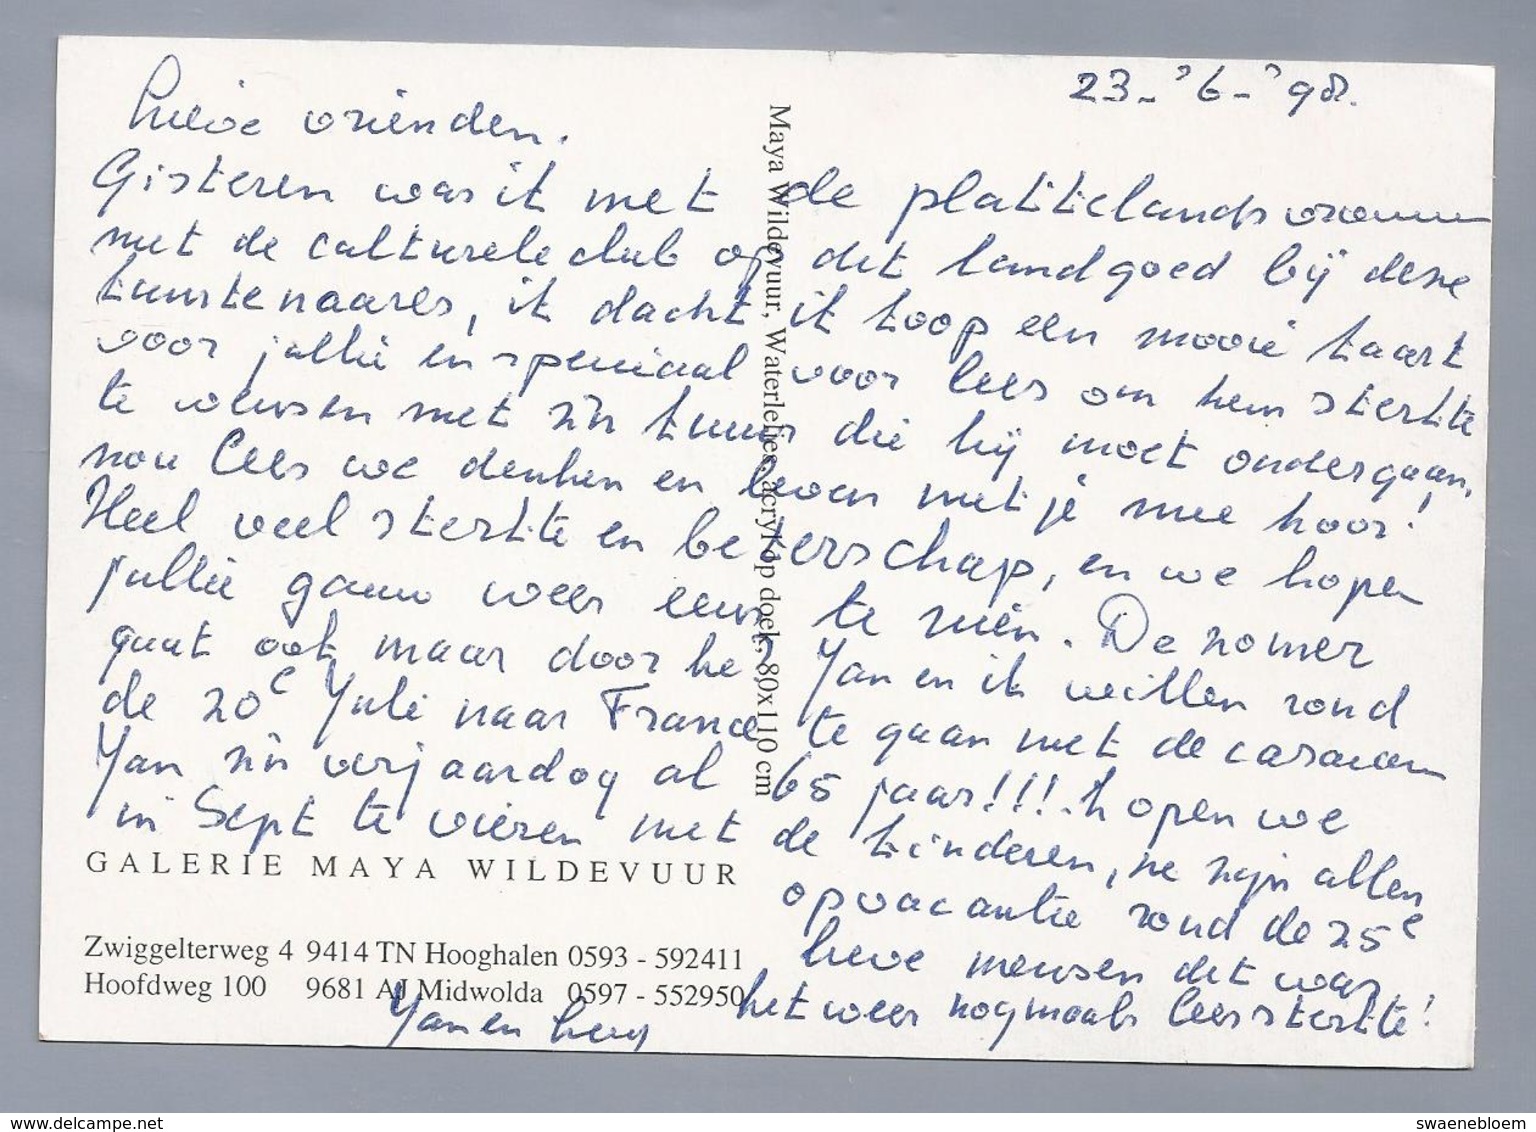 23-'6-'98.
Lieve vrienden.
Gisteren was ik met de plattelandsvrouwen
met de culturele club op dit landgoed bij deze
kunstenaares, ik dacht ik koop een mooie kaart
voor jullie en speciaal voor Cees om hem sterkte
te wensen met z'n kuur die hij moet ondergaan,
nou Cees we denken en leven met je mee hoor!
Heel veel sterkte en beterschap, en we hopen
jullie gauw weer eens te zien. De zomer
gaat ook maar door he, Jan en ik willen rond
de 20e Juli naar France te gaan met de caravan
Jan z'n verjaardag al 65 jaar!!! hopen we
in Sept te vieren met de kinderen, ze zijn allen
op vacantie rond de 25e
lieve mensen dit was
het weer nogmaals Cees sterkte!
Jan en
Maya Wildevuur, Waterlelies, acryl op doek, 80x110 cm
GALERIE MAYA WILDEVUUR
Zwiggelterweg 4 9414 TN Hooghalen 0593 - 592411
Hoofdweg 100 9681 AJ Midwolda 0597 - 552950
www.delcampe.net
swaenebloem